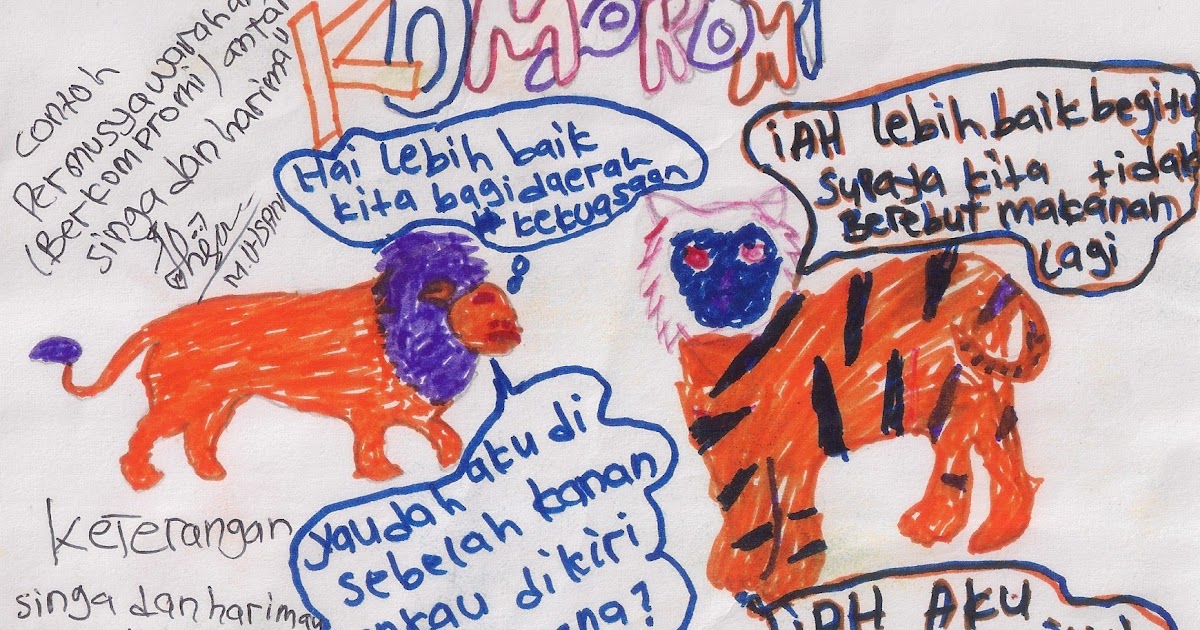 KOMOROMI
contoh
Permusyawarahan
(Berkompromi) antar
singa dan harimau"
M. IHSAN
Hai lebih baik
kita bagi daerah
kekuasaan
iAH lebih baik begitu
supaya kita tidak
Berebut makanan
Lagi
yaudah aku di
sebelah kanan
di kiri
?
iAH AKU
Keterangan
singa dan harimau